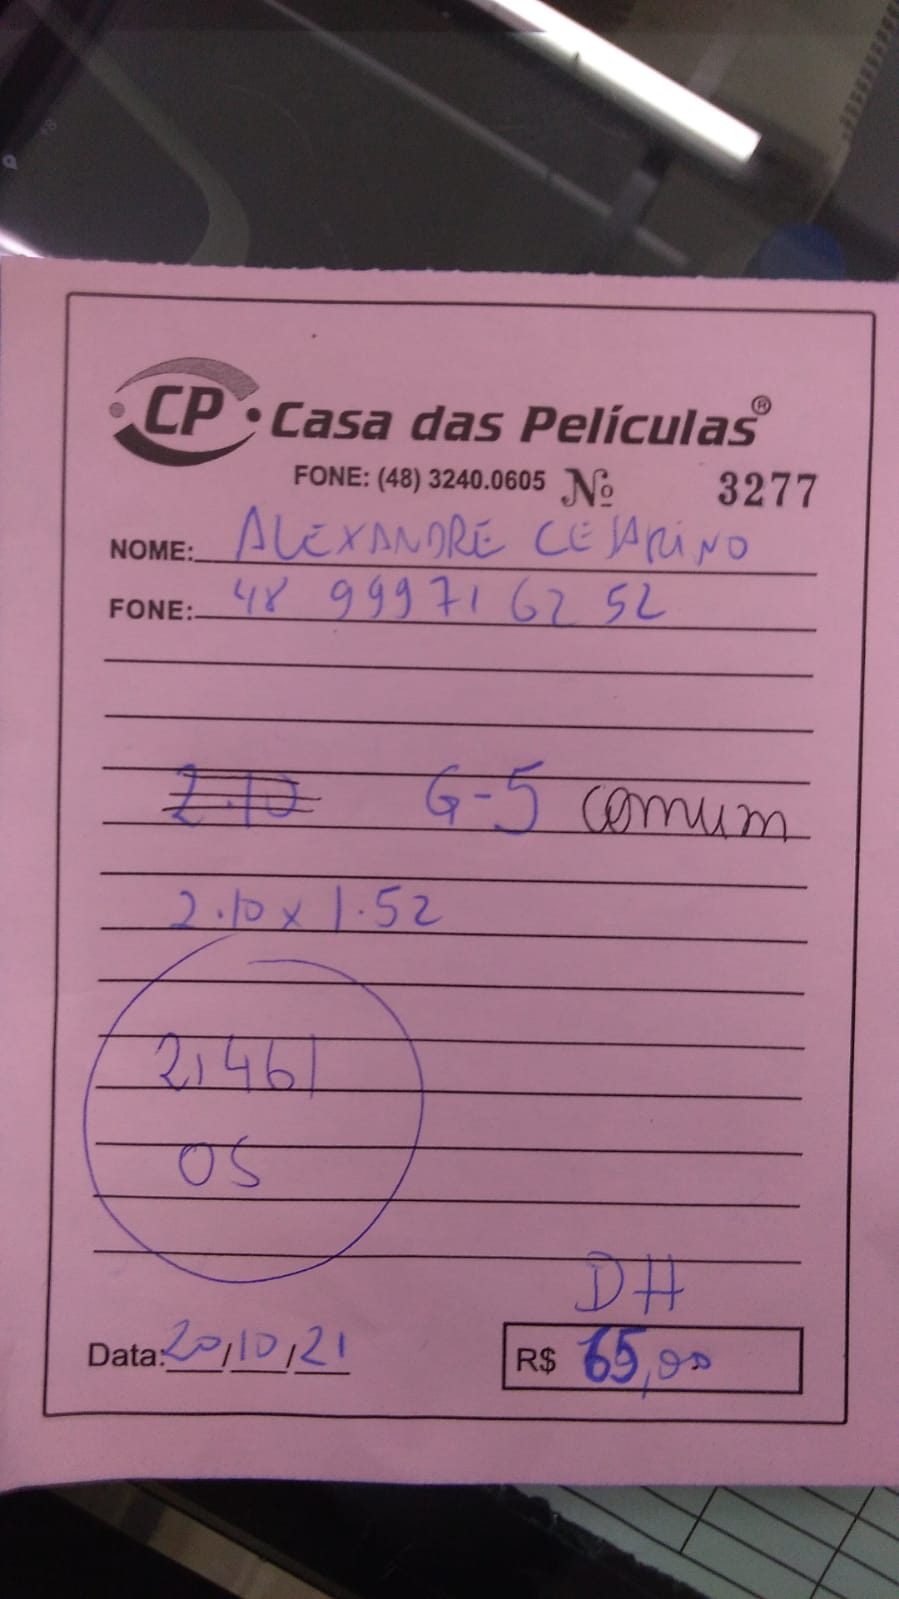 CP Casa das Películas®
FONE: (48) 3240.0605 Nº 3277
NOME: ALEXANDRE CESARINO
FONE: 48 99971 62 52
2.10 G-5 comum
2.10 x 1.52
21461
OS
DH
Data: 20/10/21 R$ 65,00